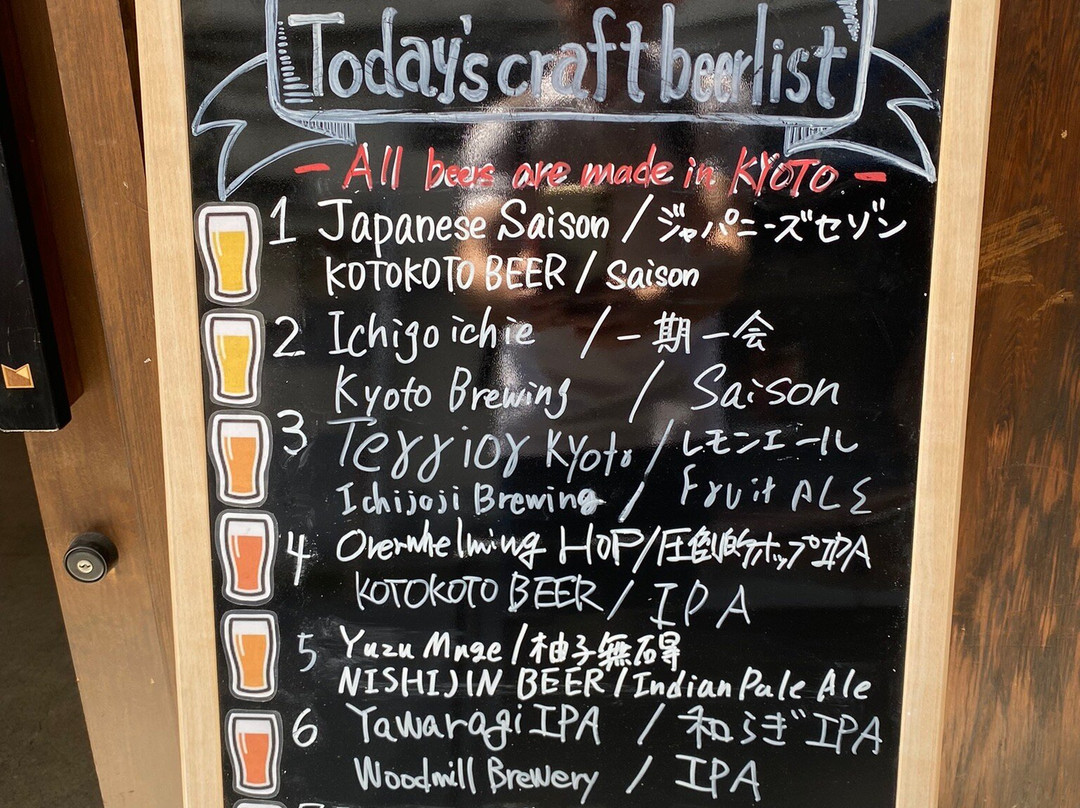 Today's craft beer list
- All beers are made in KYOTO -
1 Japanese Saison / ジャパニーズセゾン
KOTOKOTO BEER / Saison
2 Ichigo ichie / 一期一会
Kyoto Brewing / Saison
3 Terrior Kyoto / レモンエール
Ichijoji Brewing / Fruit ALE
4 Overwhelming HOP / 圧倒的ホップIPA
KOTOKOTO BEER / IPA
5 Yuzu Muge / 柚子無碍
NISHIJIN BEER / Indian Pale Ale
6 Yawaragi IPA / 和らぎIPA
Woodmill Brewery / IPA